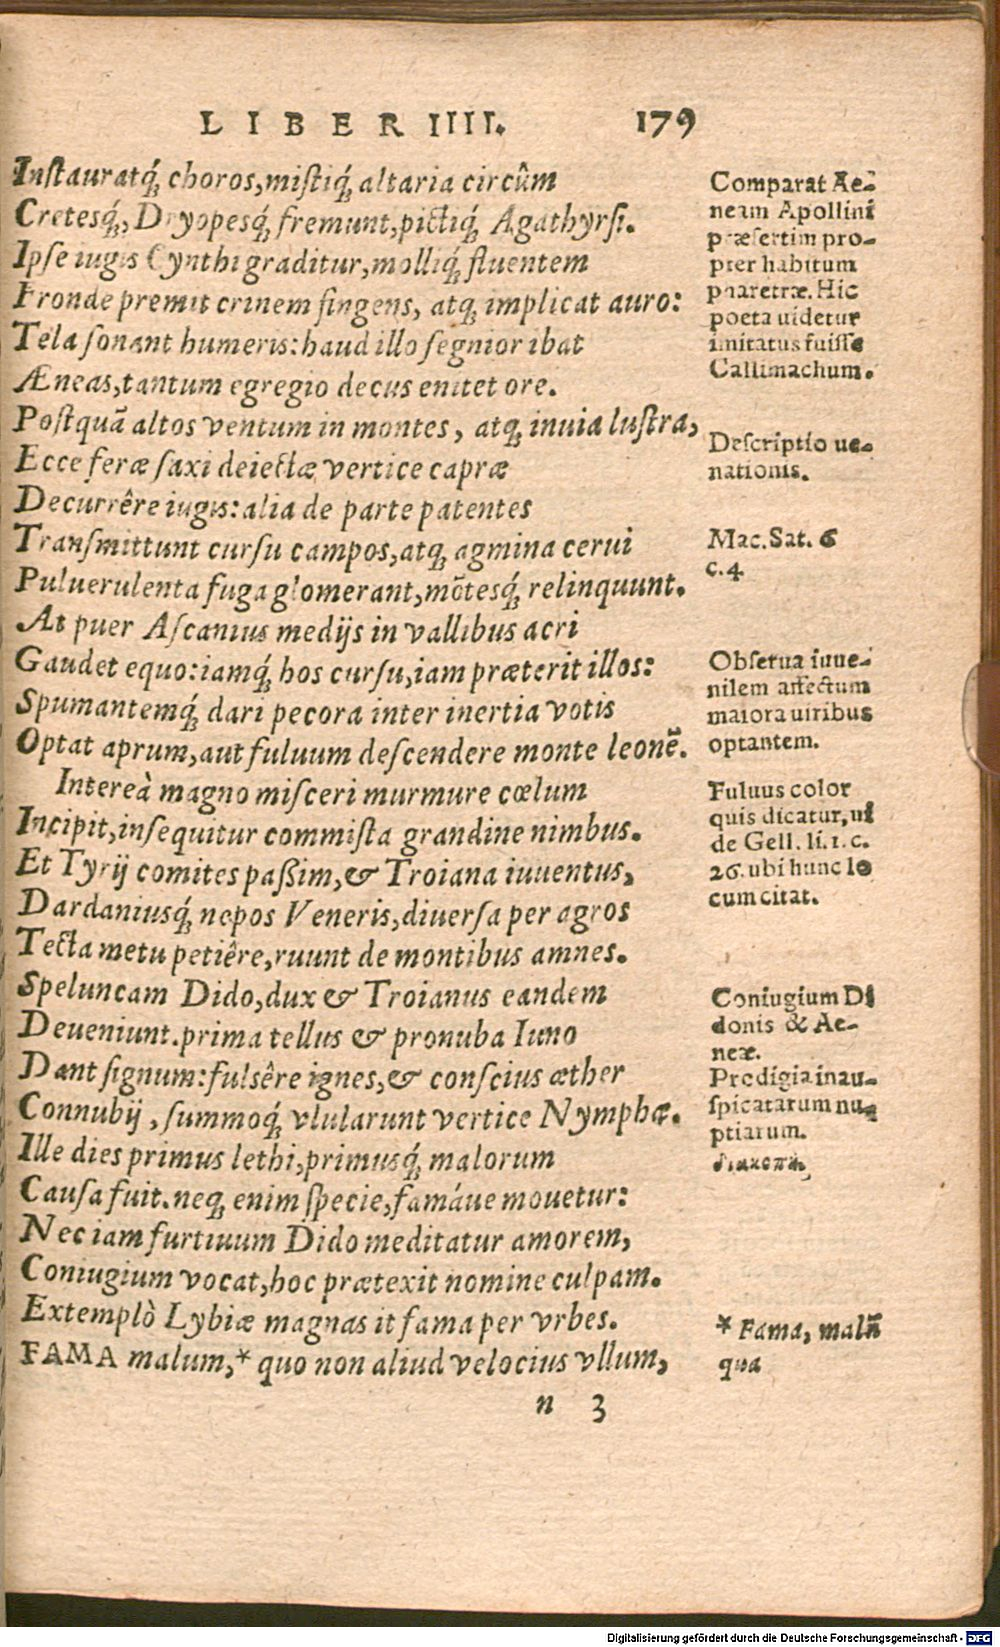 LIBER IIII. 179
Instauratq́ꝫ choros, mistiq́ꝫ altaria circûm
Cretesq́ꝫ, Dryopesq́ꝫ fremunt, pictiq́ꝫ Agathyrsi.
Ipse iugis Cynthi graditur, molliq́ꝫ fluentem
Fronde premit crinem fingens, atqꝫ implicat auro:
Tela sonant humeris: haud illo segnior ibat
Æneas, tantum egregio decus enitet ore.
Postquã altos ventum in montes, atqꝫ inuia lustra,
Ecce feræ saxi deiectæ vertice capræ
Decurrêre iugis: alia de parte patentes
Transmittunt cursu campos, atqꝫ agmina cerui
Puluerulenta fuga glomerant, mõtesq́ꝫ relinquunt.
At puer Ascanius medijs in vallibus acri
Gaudet equo: iamq́ꝫ hos cursu, iam præterit illos:
Spumantemq́ꝫ dari pecora inter inertia votis
Optat aprum, aut fuluum descendere monte leonẽ.
Intereà magno misceri murmure cœlum
Incipit, insequitur commista grandine nimbus.
Et Tyrij comites paßim, & Troiana iuuentus,
Dardaniusq́ꝫ nepos Veneris, diuersa per agros
Tecta metu petiêre, ruunt de montibus amnes.
Speluncam Dido, dux & Troianus eandem
Deueniunt. prima tellus & pronuba Iuno
Dant signum: fulsêre ignes, & conscius æther
Connubij, summoq́ꝫ vlularunt vertice Nymphæ.
Ille dies primus lethi, primusq́ꝫ malorum
Causa fuit. neqꝫ enim specie, famáue mouetur:
Nec iam furtiuum Dido meditatur amorem,
Coniugium vocat, hoc prætexit nomine culpam.
Extemplò Lybiæ magnas it fama per vrbes.
FAMA malum,* quo non aliud velocius vllum,
n 3
Comparat Ae-
neam Apollini
præsertim pro-
pter habitum
pharetræ. Hic
poeta uidetur
imitatus fuisse
Callimachum.
Descriptio ue-
nationis.
Mac. Sat. 6
c. 4
Obserua iuue-
nilem affectum
maiora uiribus
optantem.
Fuluus color
quis dicatur, ui
de Gell. li. 1. c.
26. ubi hunc lo
cum citat.
Coniugium Di
donis & Ae-
neæ.
Prodigia inau-
spicatarum nu-
ptiarum.
* Fama, malũ
qua
Digitalisierung gefördert durch die Deutsche Forschungsgemeinschaft - DFG